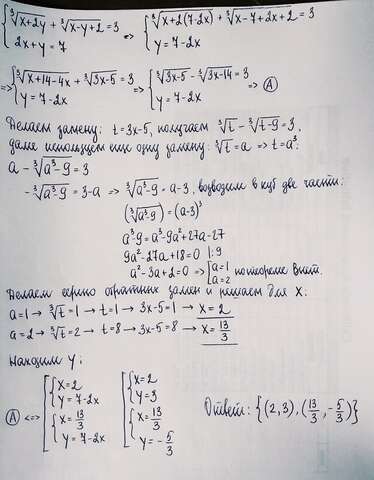 { ∛(x+2y) + ∛(x-y+2) = 3 => { ∛(x+2(7-2x)) + ∛(x-7+2x+2) = 3
2x+y=7 y=7-2x
=> { ∛(x+14-4x) + ∛(3x-5) = 3 => { ∛(3x-5) - ∛(3x-14) = 3 => Ⓐ
y=7-2x y=7-2x
Делаем замену: t=3x-5, получаем ∛t - ∛(t-9) = 3,
далее используем еще одну замену: ∛t = a => t=a³:
a - ∛(a³-9) = 3
-∛(a³-9) = 3-a => ∛(a³-9) = a-3, возводим в куб две части:
(∛(a³-9)) = (a-3)³
a³-9=a³-9a²+27a-27
9a²-27a+18=0 |:9
a²-3a+2=0 => [ a=1 по теореме Виет.
a=2
Делаем серию обратных замен и решаем для x:
a=1 → ∛t=1 → t=1 → 3x-5=1 → x=2
a=2 → ∛t=2 → t=8 → 3x-5=8 → x=13/3
Находим y:
Ⓐ <=> [ { x=2 [ { x=2
y=7-2x y=3
{ x=13/3 { x=13/3
y=7-2x y=-5/3
Ответ: {(2,3),(13/3,-5/3)}